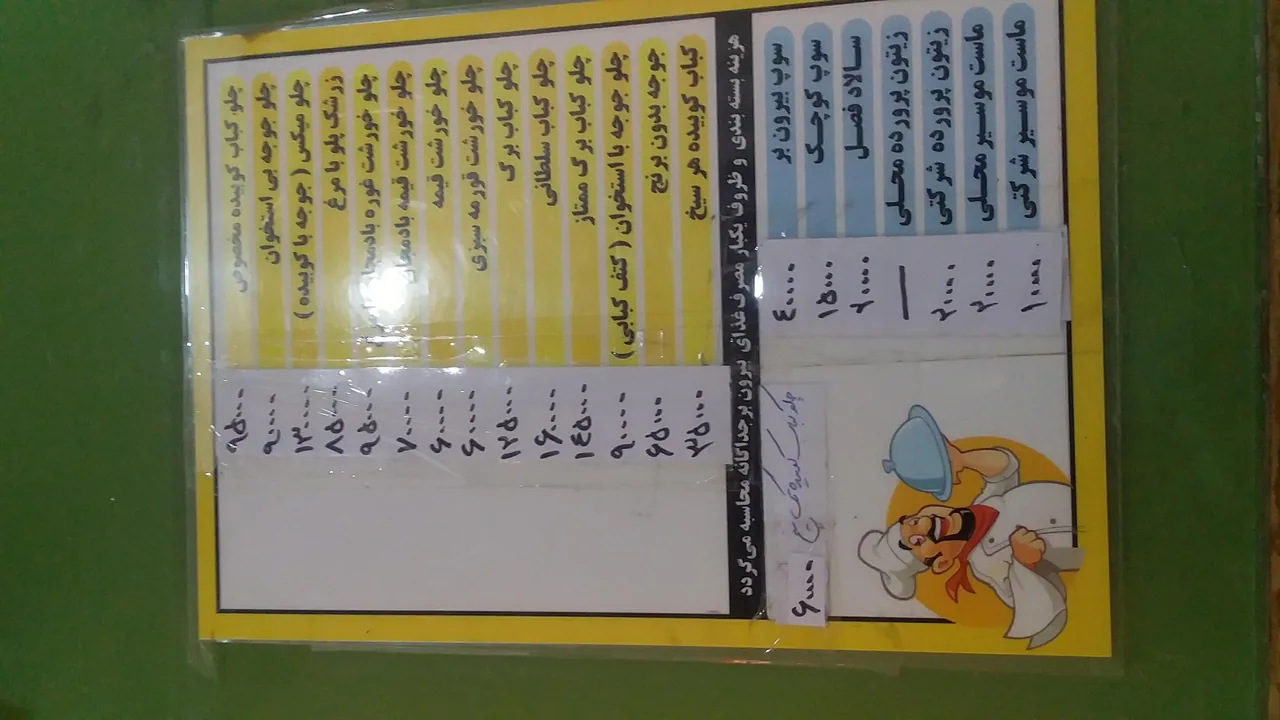 چلو کباب کوبیده مخصوص ۹۵۰۰۰
چلو جوجه بی استخوان ۹۰۰۰۰
چلو میکس ( جوجه با کوبیده ) ۱۳۰۰۰۰
زرشک پلو با مرغ ۸۵۰۰۰
چلو خورشت غوره بادمجان ۹۵۰۰۰
چلو خورشت قیمه بادمجان ۷۰۰۰۰
چلو خورشت قیمه ۶۰۰۰۰
چلو خورشت قورمه سبزی ۶۰۰۰۰
چلو کباب برگ ۱۲۵۰۰۰
چلو کباب سلطانی ۱۶۰۰۰۰
چلو کباب برگ ممتاز ۱۴۵۰۰۰
چلو جوجه با استخوان ( کتف کبابی ) ۹۰۰۰۰
جوجه بدون برنج ۶۵۰۰۰
کباب کوبیده هر سیخ ۳۵۰۰۰
هزینه بسته بندی و ظروف یکبار مصرف غذای بیرون بر جداگانه محاسبه می‌گردد
سوپ بیرون بر ۴۰۰۰۰
سوپ کوچک ۱۵۰۰۰
سالاد فصل ۲۰۰۰۰
زیتون پرورده محلی —
زیتون پرورده شرکتی ۲۰۰۰۰
ماست موسیر محلی ۲۰۰۰۰
ماست موسیر شرکتی ۱۰۰۰۰
چلو کباب کوبیده یک سیخ ۶۰۰۰۰